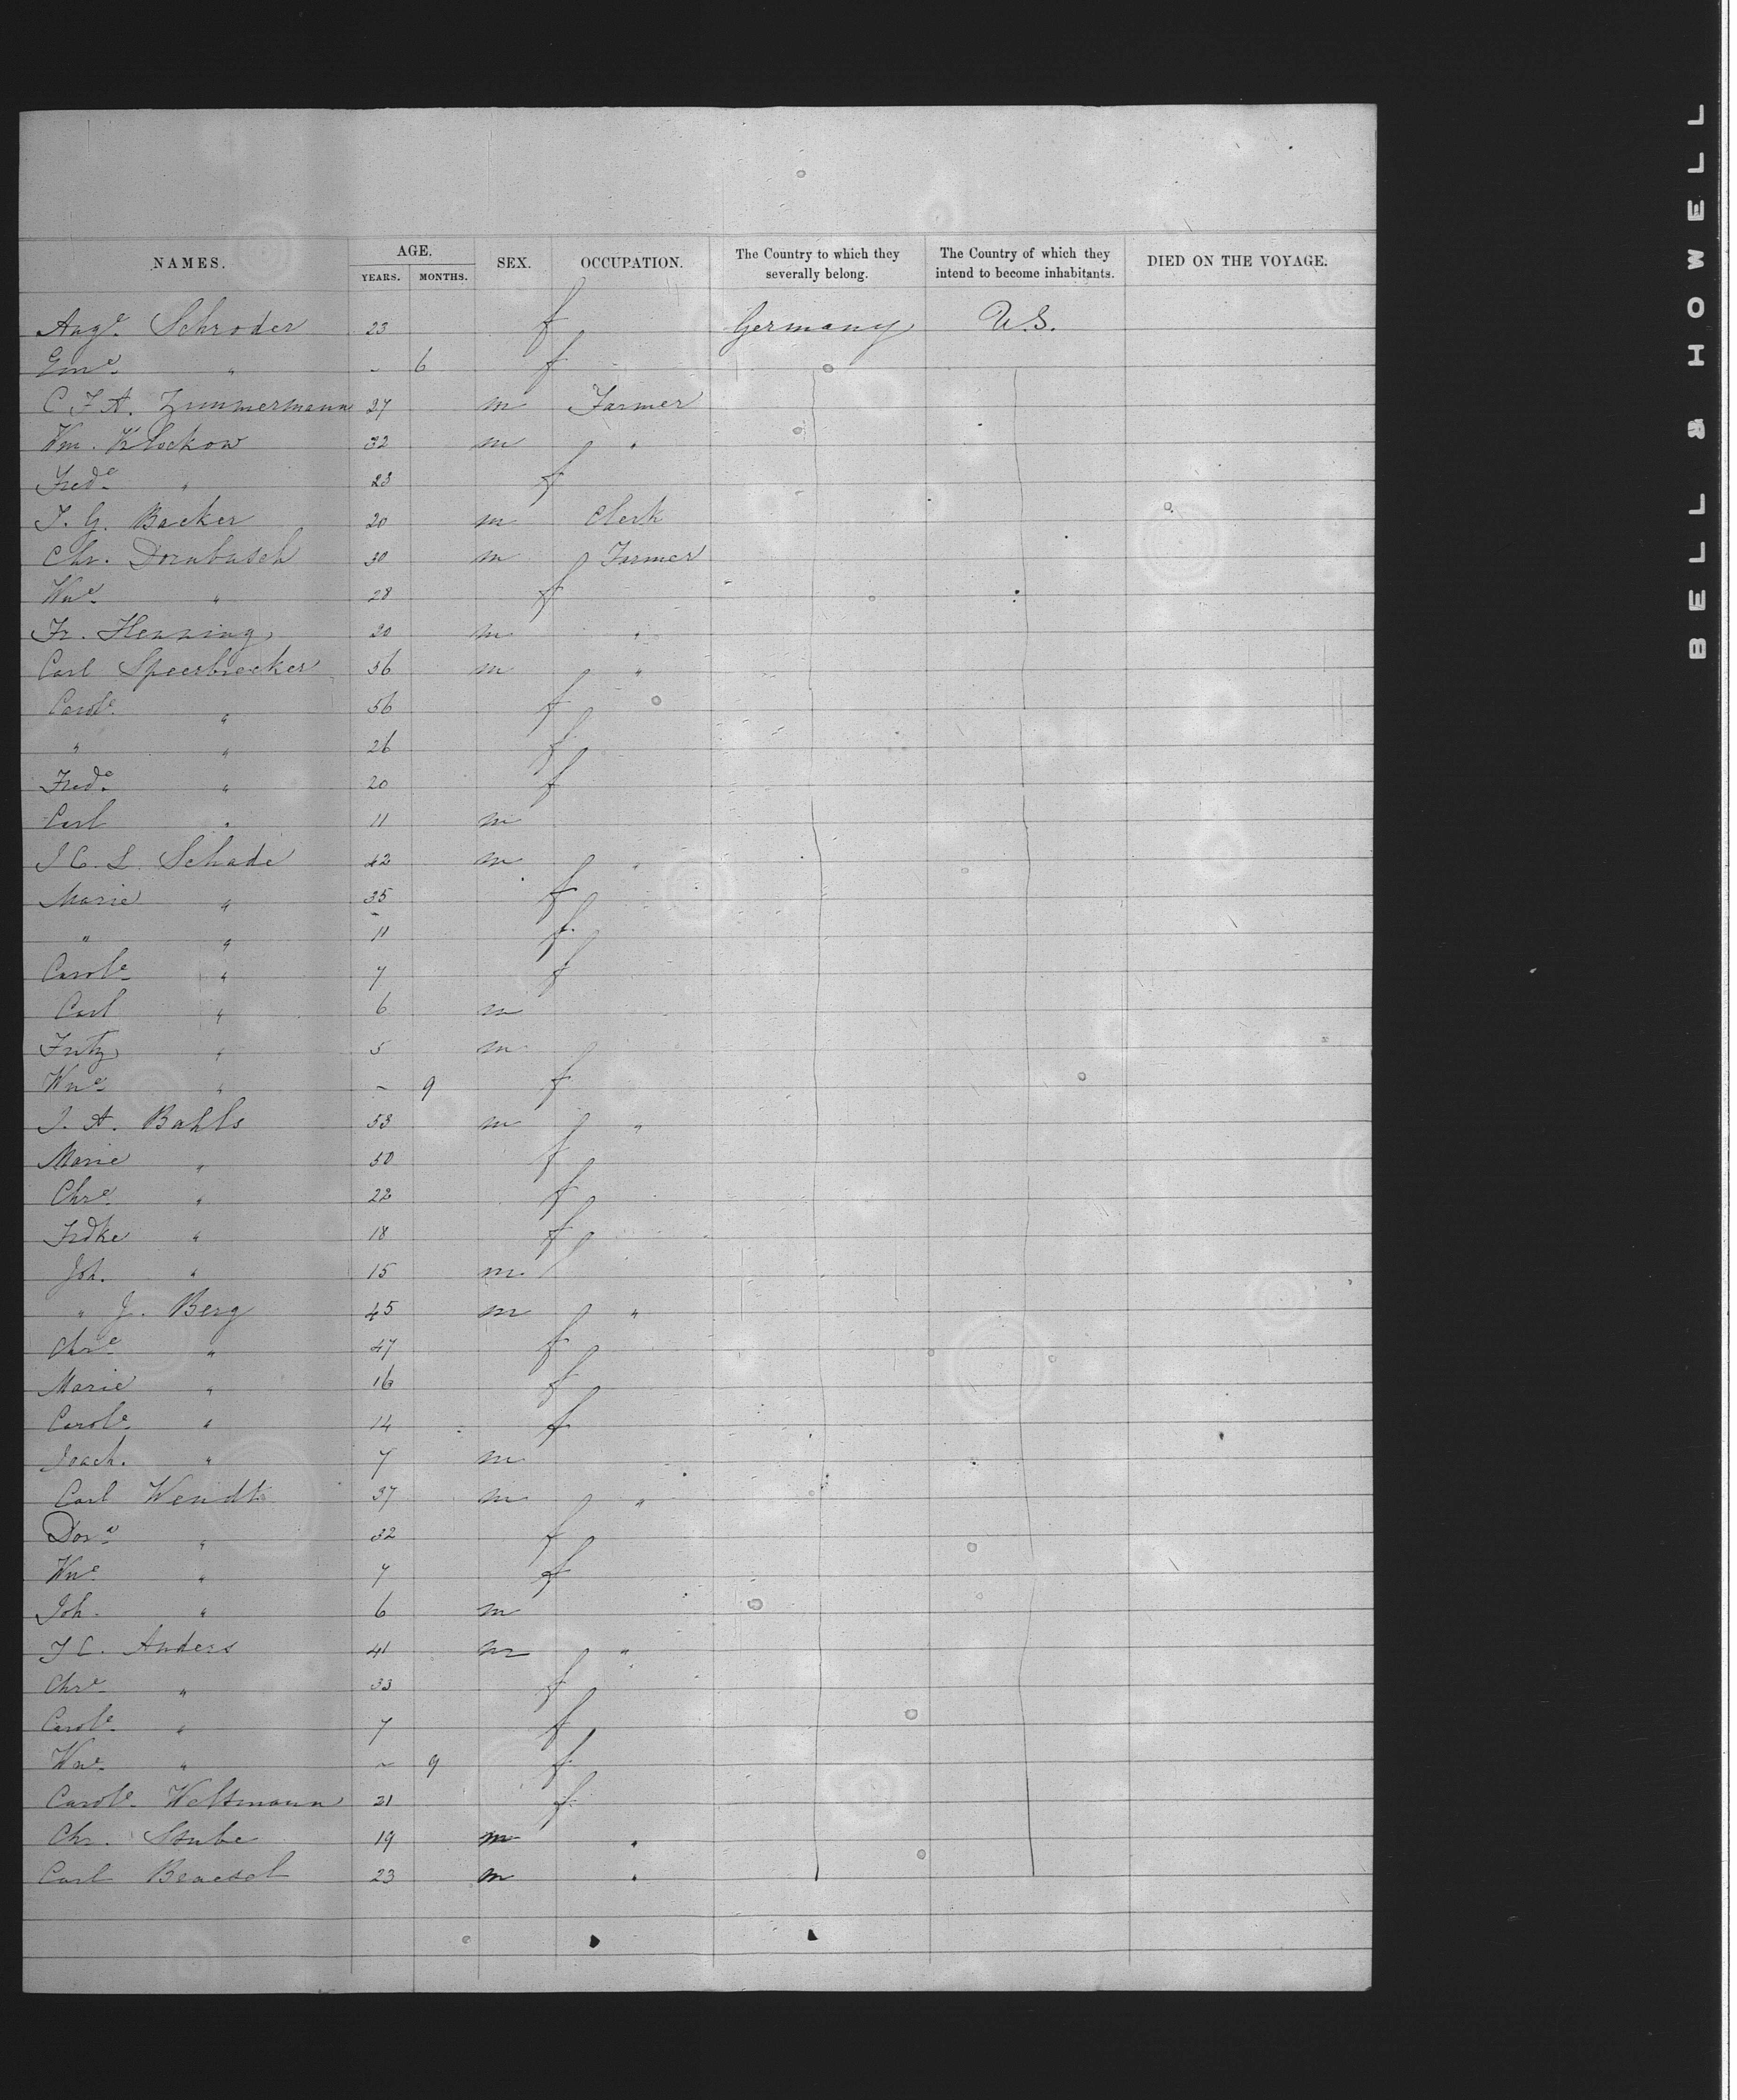 NAMES. AGE. SEX. OCCUPATION. The Country to which they severally belong. The Country of which they intend to become inhabitants. DIED ON THE VOYAGE.
YEARS. MONTHS.
Auge Schroder 23 f Germany U.S.
Eme " - 6 f
C. F. A. Zimmermann 27 m Farmer
Wm. Klockow 32 m "
Frede " 23 f
J. G. Backer 20 m Clerk
Chr. Dornbusch 30 m Farmer
Wne " 28 f
Fr. Henning 20 m "
Carl Speerbrecker 56 m "
Carole " 56 f
" " 26 f
Frede " 20 f
Carl " 11 m
J. C. L. Schade 42 m "
Marie " 35 f
" " 11 f
Carole " 7 f
Carl " 6 m
Fritz " 5 m
Wne " - 9 f
J. A. Bahls 53 m "
Marie " 50 f
Chre " 22 f
Frdke " 18 f
Joh. " 15 m
" J. Berg 45 m "
Chre " 47 f
Marie " 16 f
Carole " 14 f
Joach. " 7 m
Carl Wendt 37 m "
Dora " 32 f
Wne " 7 f
Joh. " 6 m
J C. Anders 41 m "
Chre " 33 f
Carole " 7 f
Wne " - 9 f
Carole Weltmann 21 f
Chr. Stube 19 m "
Carl 23 m "
BELL & HOWELL